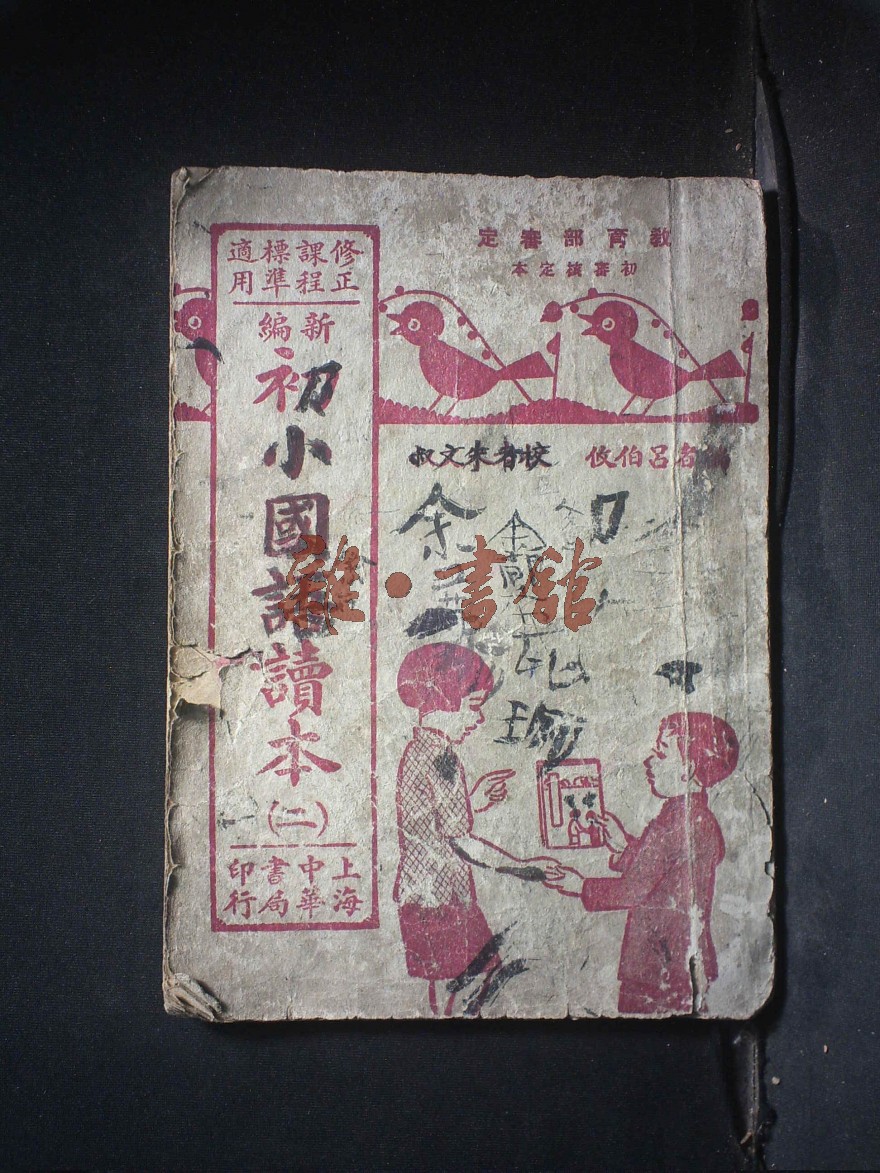 教育部審定
初審核定本
修正課程標準適用
新編
初小國語讀本
(二)
上海中華書局印行
編者呂伯攸 校者朱文叔
余
初
雜·書館